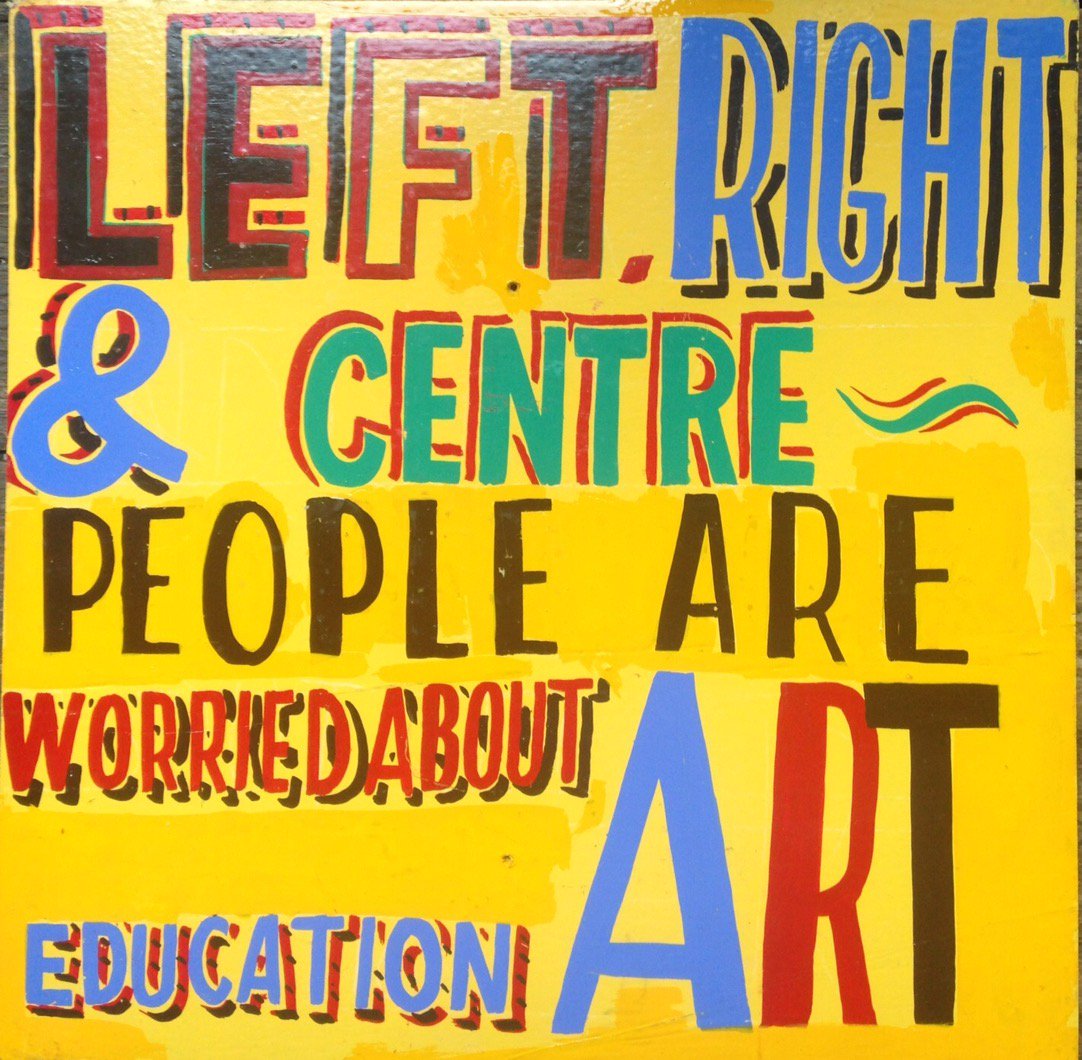 LEFT. RIGHT
& CENTRE ~
PEOPLE ARE
WORRIED ABOUT
ART
EDUCATION